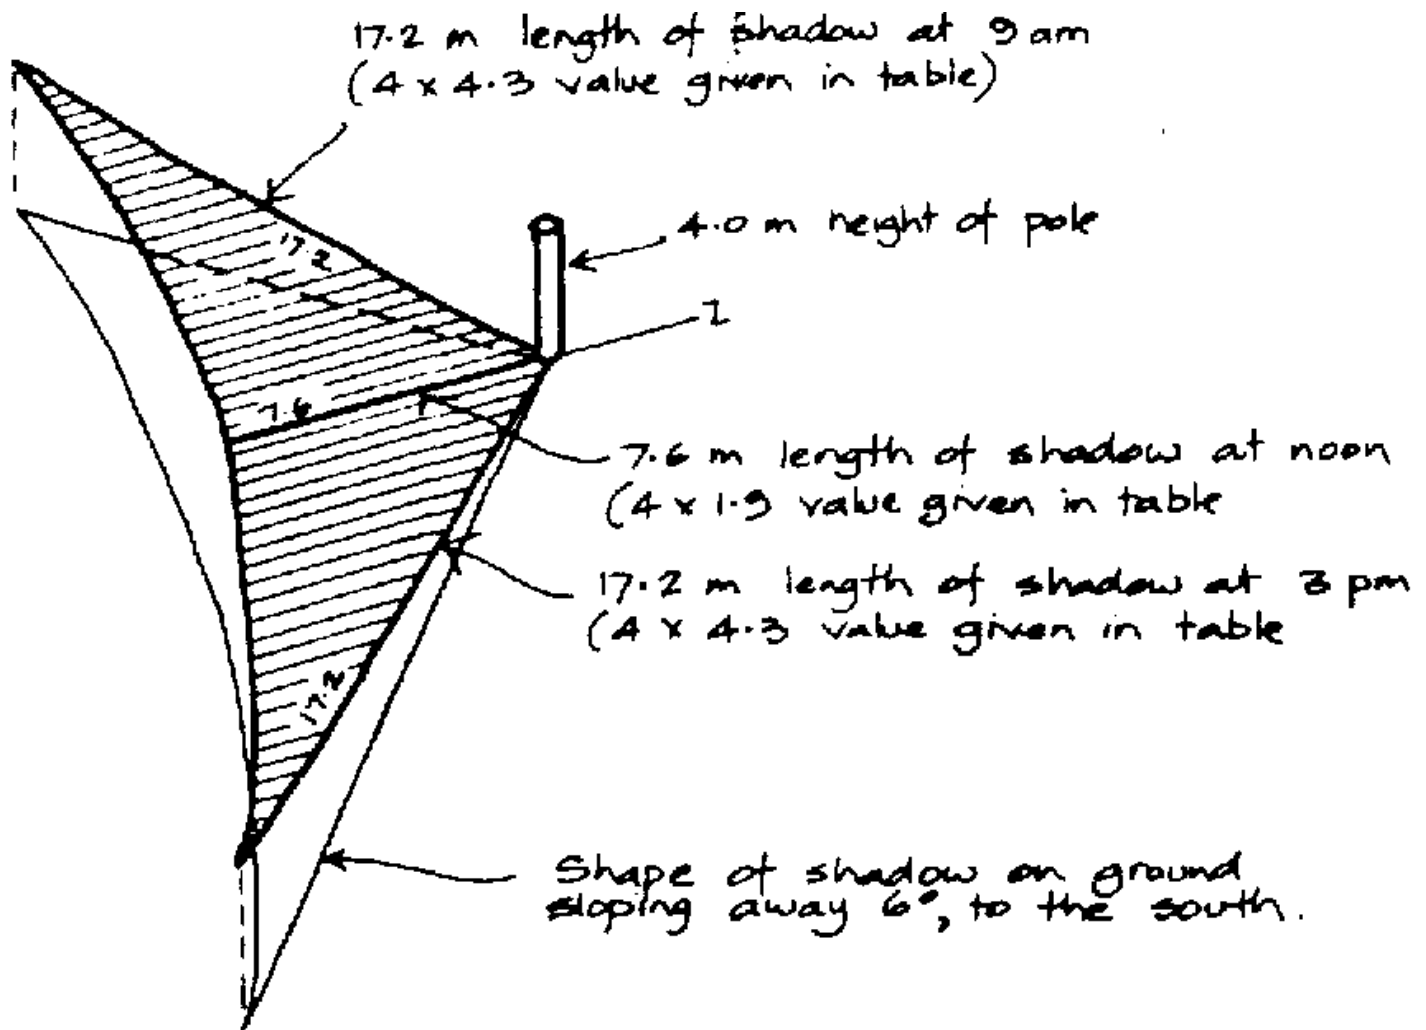 17.2 m length of shadow at 9 am
(4 x 4.3 value given in table)
17.2
4.0 m height of pole
1
7.6
7.6 m length of shadow at noon
(4 x 1.9 value given in table
17.2 m length of shadow at 3 pm
(4 x 4.3 value given in table
17.2
Shape of shadow on ground
sloping away 6°, to the south.